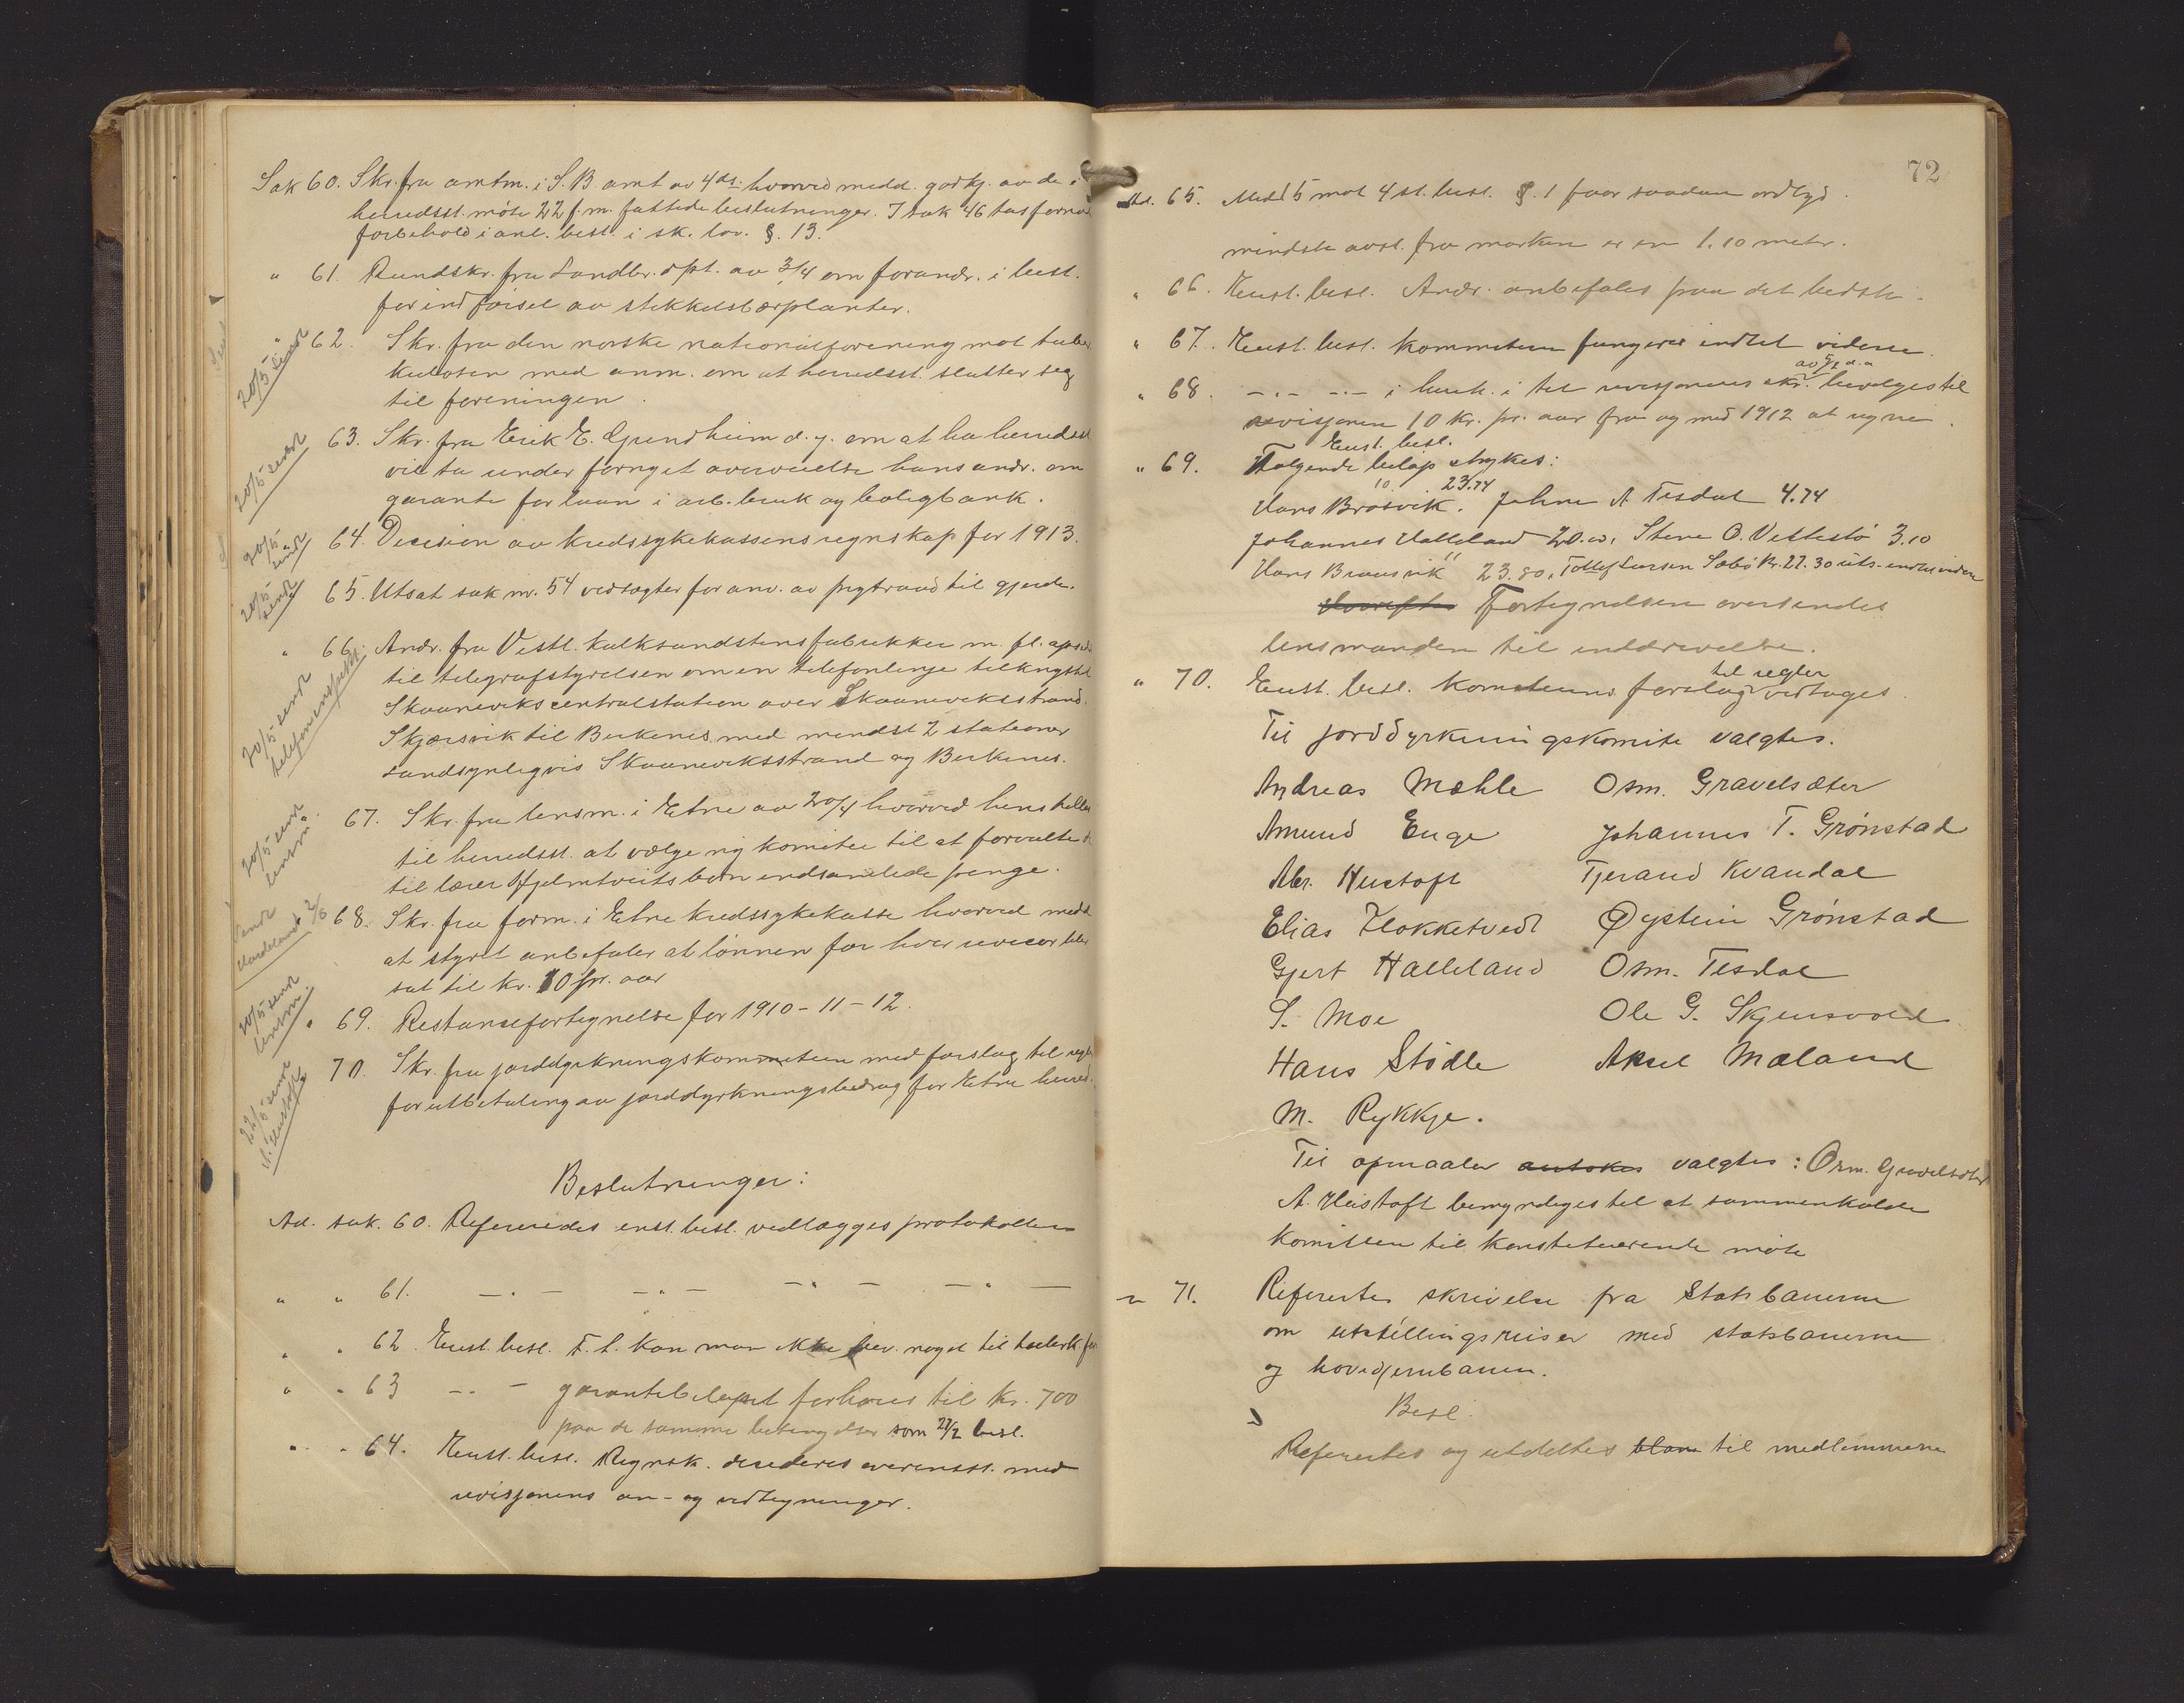 Sak 60. Skr. fra amtm. i S. B. amt av 4 ds. hvorved medd. godkj. av de i
herredsst. møte 22 f. m. fattede beslutninger. I sak 46 tas fornød
forbehold i anl. best. i sk. lov. §. 13.
" 61. Rundskr. fra Landbr. dpt. av 3/4 om forandr. i best.
for indførsel av stikkelsbærplanter.
20/5 sendt
" 62. Skr. fra den norske nationalforening mot tuber
kulosen med anm. om at herredsst. slutter seg
til foreningen.
20/5 sendt
63. Skr. fra Erik E. Grindheim d. y. om at ha herredsst
vil ta under fornyet overveielse hans andr. om
garanti for laan i arb. bruk og boligbank.
20/5 sendt
64. Decision av kredssykekassens regnskap for 1913.
20/5 sendt
65. Utsat sak nr. 54 vedtægter for anv. av pigtraad til gjerde.
20/5 sendt telefoninspekt.
" 66. Andr. fra Vestl. kalksandstensfabrikker m. fl.
til telegrafstyrelsen om en telefonlinje tilknyttet
Skaaneviks centralstation over Skaaneviksstrand
Skjærsvik til Berkenes med mindst 2 stationer
sandsynligvis Skaaneviksstrand og Berkenes.
20/5 sendt lensm.
67. Skr. fra lensm. i Etne av 20/4 hvorved henstilles
til herredsst. at vælge ny komite til at forvalte de
til lærer Hjelmtveits barn indsamlede penge.
Sendt 2/6
68. Skr. fra form. i Etne kredssykekasse hvorved medd
at styret anbefaler at lønnen for hver revisor blir
sat til kr. 10 pr. aar
20/5 sendt lensm.
" 69. Restansefortegnelse for 1910-11-12.
22/5 sendt A. Hustoft
70. Skr. fra jorddyrkningskomiteen med forslag til regler
for utbetaling av jorddyrkningsbidrag for Etne herred.
Beslutninger:
Ad. sak. 60. Refereredes enst. besl. vedlægges protokollen
" " 61. — " — — " — — " — — " —
" " 62. Enst. besl. F. t. kan man ikke bev. noget til tuberk. for
" " 63 — " — garantibeløpet forhøies til kr. 700
paa de samme betingelser som 27/2 besl.
" " 64. Enst. besl. Regnsk. decideres overensst. med
revisjonens an- og vedtegninger.
72
Ad. 65. Med 5 mot 4 st. besl. §. 1 faar saadan ordlyd.
mindste avst. fra marken er en 1.10 meter.
" 66. Enst. besl. Andr. anbefales paa det bedste.
" 67. Enst. besl. kommiteen fungerer indtil videre.
av 5/2 d. a
" 68. — " — — " — i henh. i til revisjonens skr. bevilges til
revisjonen 10 kr. pr. aar fra og med 1912 at regne.
Enst. besl.
" 69. Følgende beløp strykes:
10. 23.74
Hans Bråsvik. Johan A Tesdal 4.74
Johannes Halleland 20.00, Stene O. Vestbø 3.10
Hans Braasvik 23.80, Tollef Larsen Sæbø kr. 27.30 uts. indtil videre
Fortegnelsen oversendes
lensmanden til inddrivelse.
til regler
" 70. Enst. besl. komiteens forslag vedtages.
Til jorddyrkningskomite valgtes.
Andreas Mæhle Osm. Gravelsæter
Amund Enge Johannes T. Grønstad
Abr. Hustoft Tjerand Kvandal
Elias Flokketvedt Øystein Grønstad
Gjert Halleland Osm. Tesdal
S. Moe Ole G. Skjensvold
Hans Stødle Aksel Mæland
M. Rykkje.
Til opmaaler antokes valgtes: Osm. Gravelsæter
A. Hustoft bemyndiges til at sammenkalde
komiteen til konstituerende møte
" 71. Refererts skrivelse fra Statsbanerne
om utstillingsreiser med statsbanerne
og hovedjernbanen.
Besl.
Refererts og utdeltes blan til medlemmerne